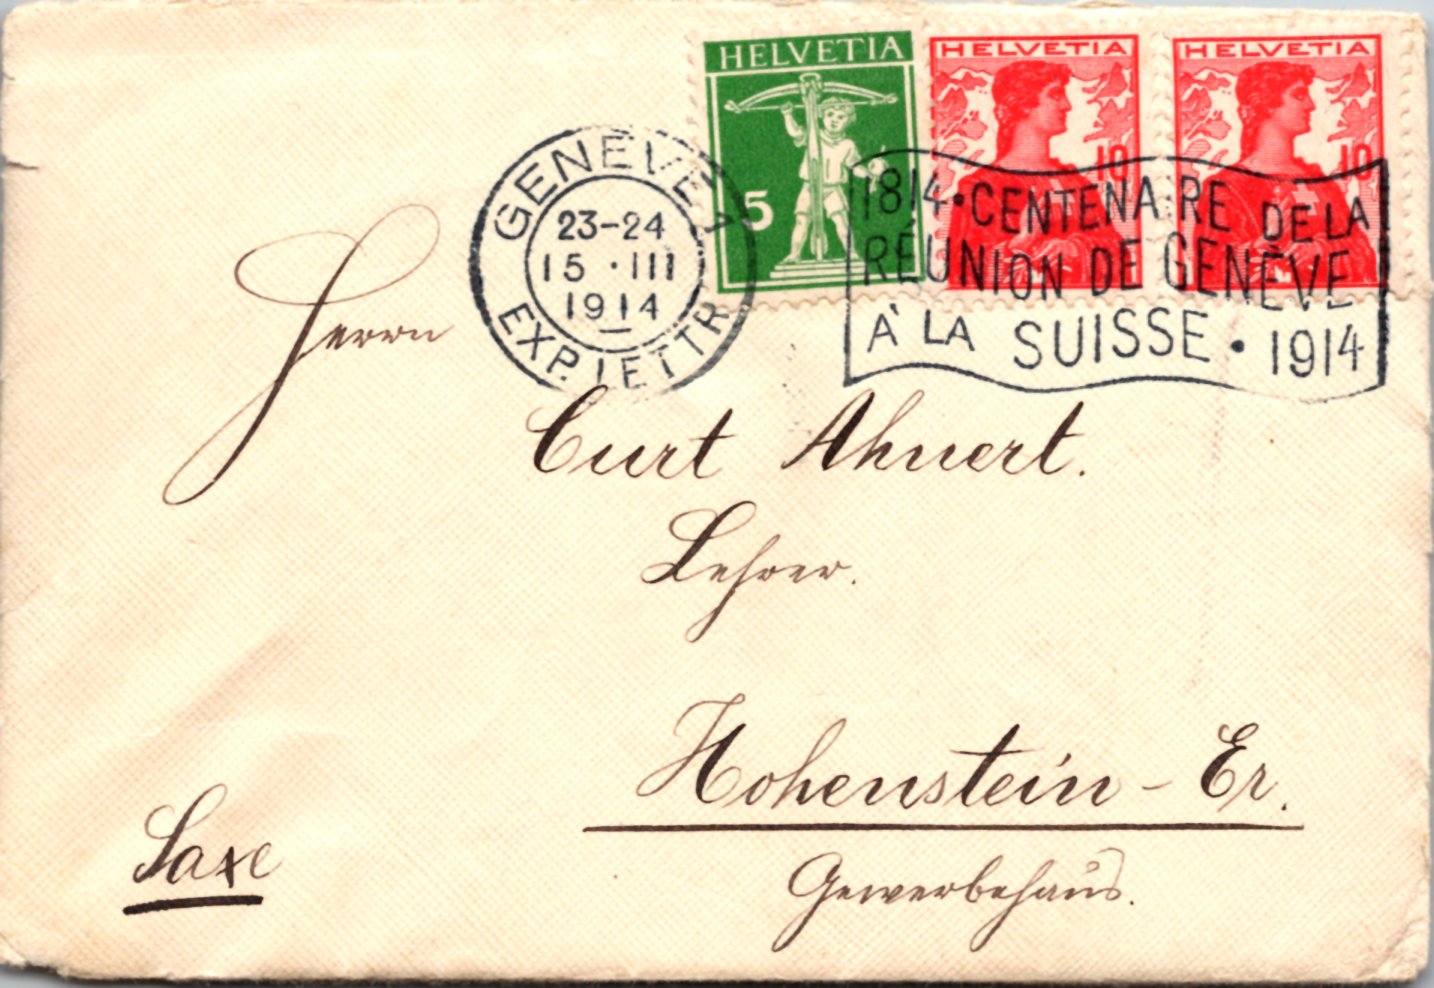 HELVETIA
5
HELVETIA
10
HELVETIA
10
GENÈVE 1
23-24
15 · III
1914
EXP. LETTR
1814 · CENTENAIRE DE LA
RÉUNION DE GENÈVE
À LA SUISSE · 1914
Herrn
Curt Ahnert.
Lehrer.
Hohenstein-Er.
Saxe
Gewerbehaus.